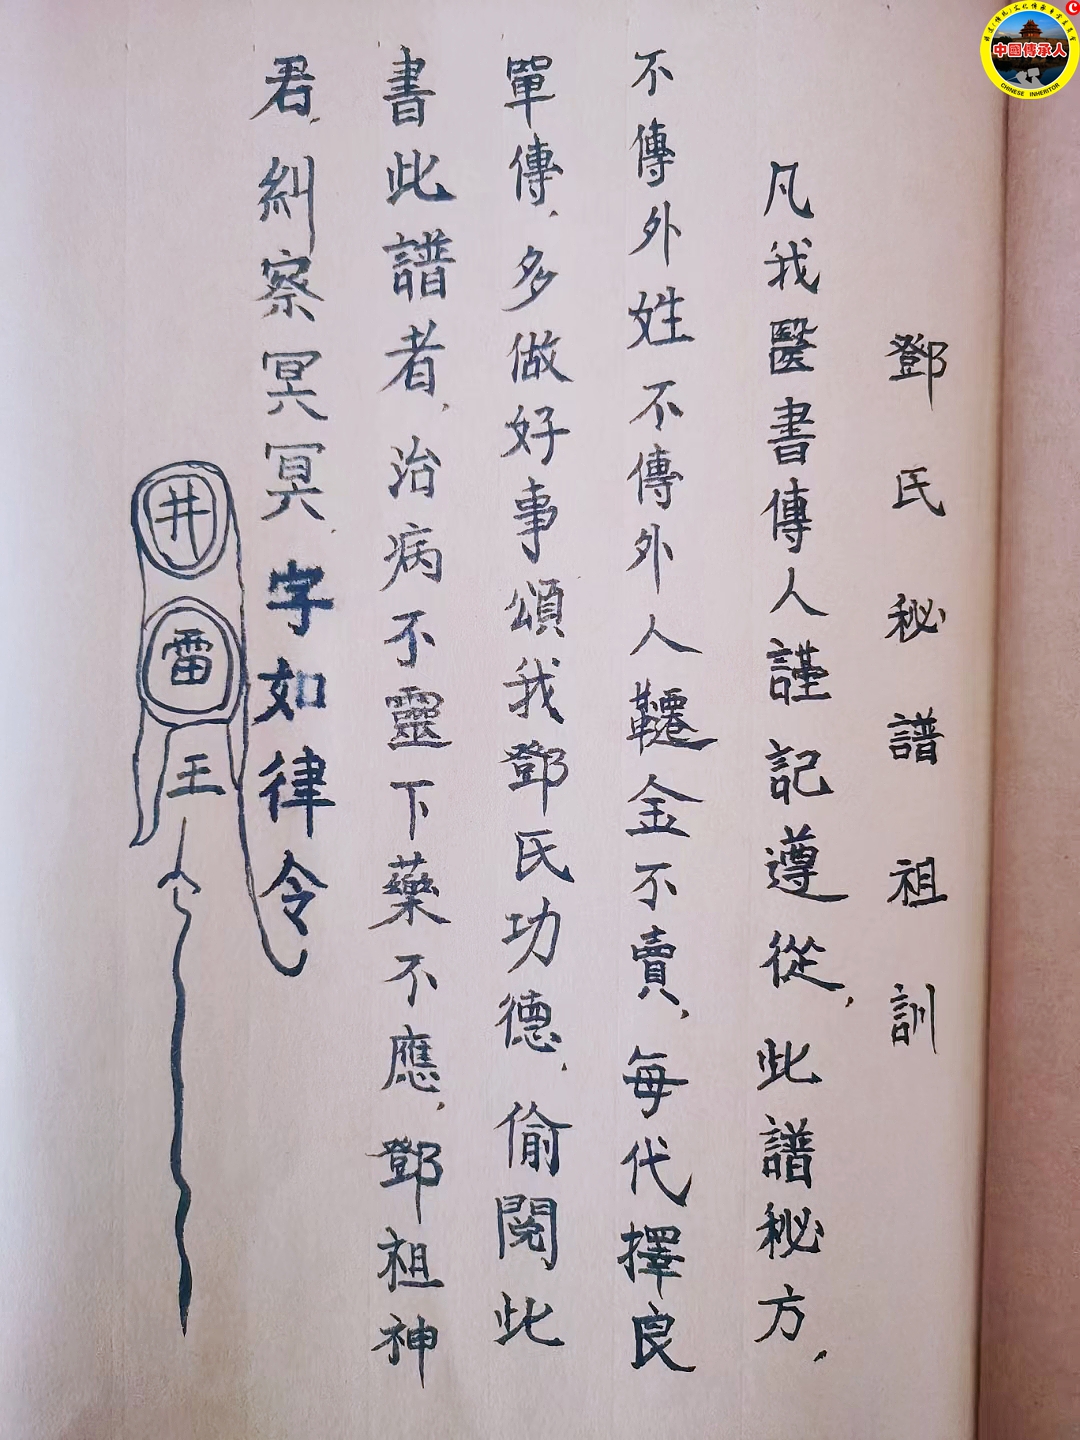 鄧氏秘譜祖訓
凡我醫書傳人謹記遵從,此譜秘方,
不傳外姓不傳外人韆金不賣,每代擇良
單傳,多做好事頌我鄧氏功德,偷閱此
書此譜者,治病不靈下藥不應,鄧祖神
君,糾察冥冥,字如律令
井
雷
王
中國傳承人
CHINESE INHERITOR
C